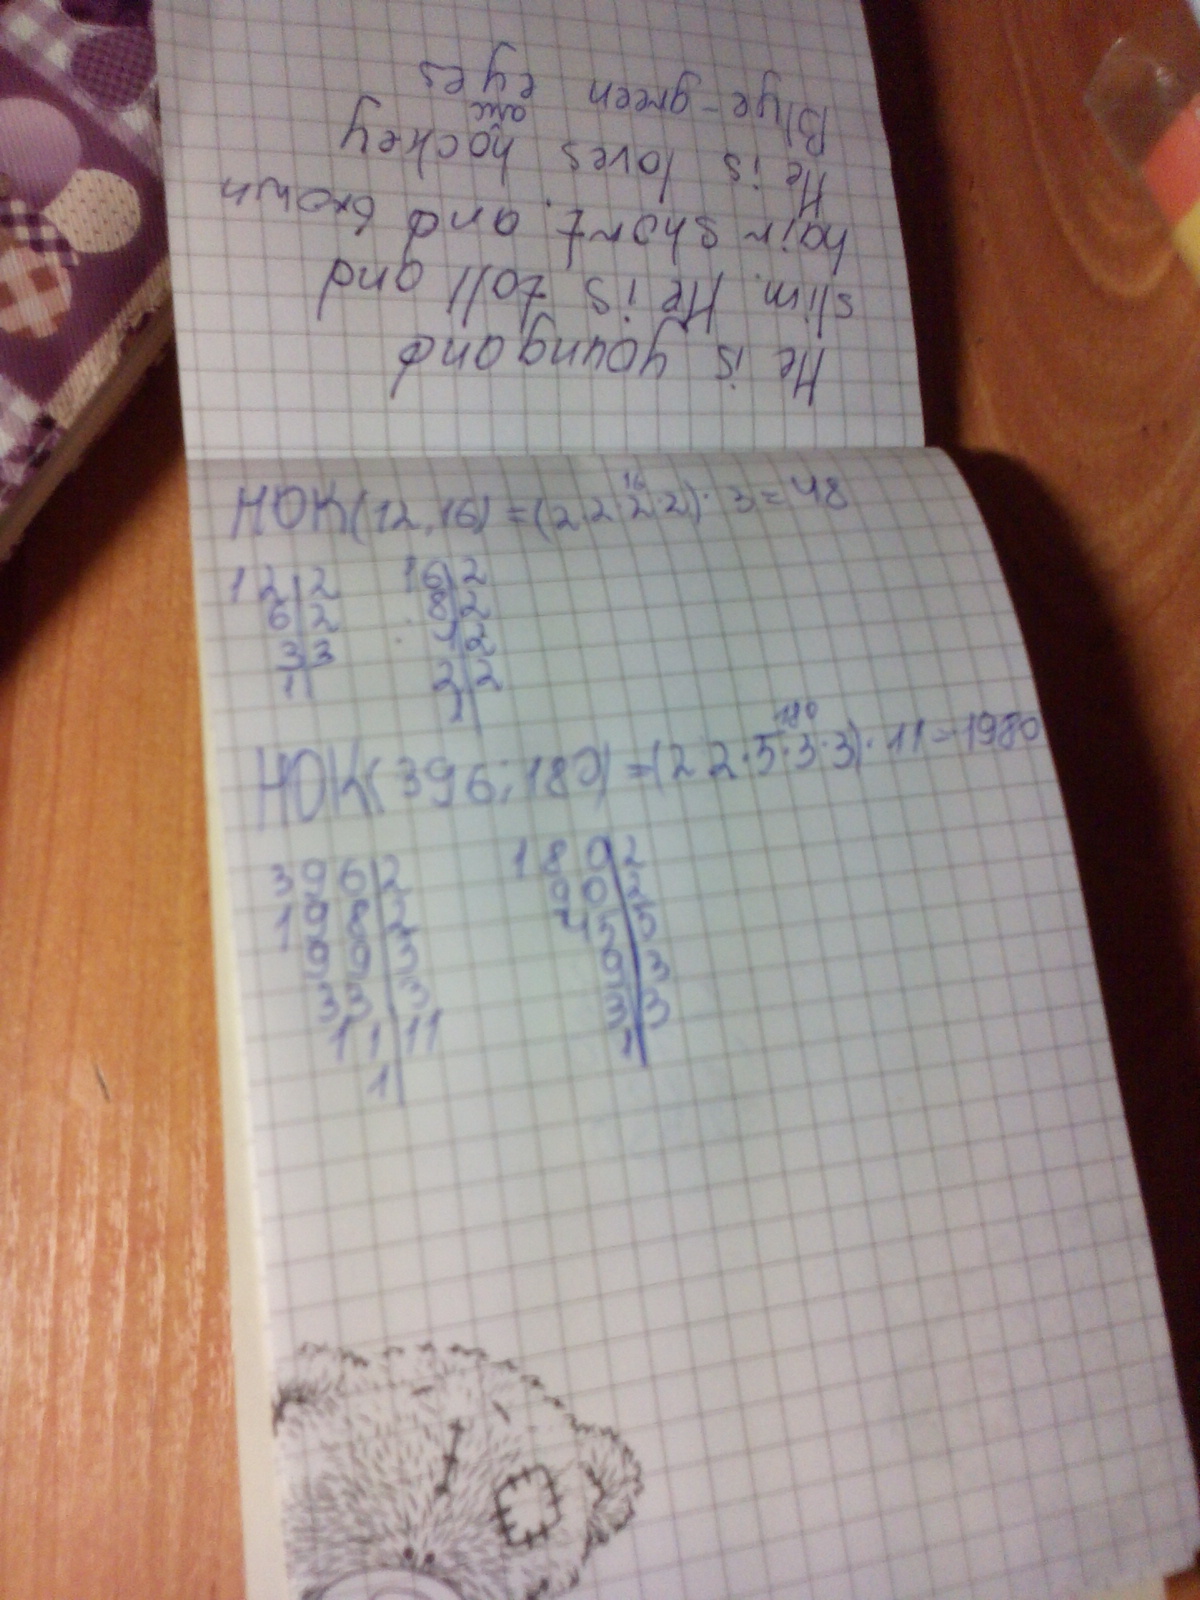 He is young and
slim. He is toll and
hair short, and brown
He is loves hockey
Blye-green eyes
НОК(12,16)=(2·2·2·2)·3=48
16
12|2 16|2
6|2 8|2
3|3 4|2
1| 2|2
1|
НОК(396;180)=(2·2·5·3·3)·11=1980
180
396|2 180|2
198|2 90|2
99|3 45|5
33|3 9|3
11|11 3|3
1| 1|